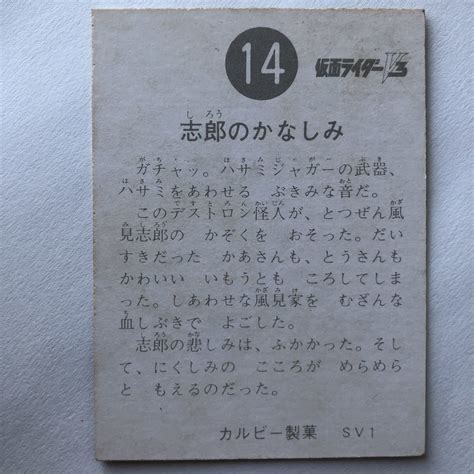 14
仮面ライダーV3
志郎のかなしみ
ガチャッ。ハサミジャガーの武器、
ハサミをあわせる ぶきみな音だ。
このデストロン怪人が、とつぜん風
見志郎の かぞくを おそった。だい
すきだった かあさんも、とうさんも
かわいい いもうとも ころしてしま
った。しあわせな風見家を むざんな
血しぶきで よごした。
志郎の悲しみは、ふかかった。そし
て、にくしみの こころが めらめら
と もえるのだった。
カルビー製菓 SV1